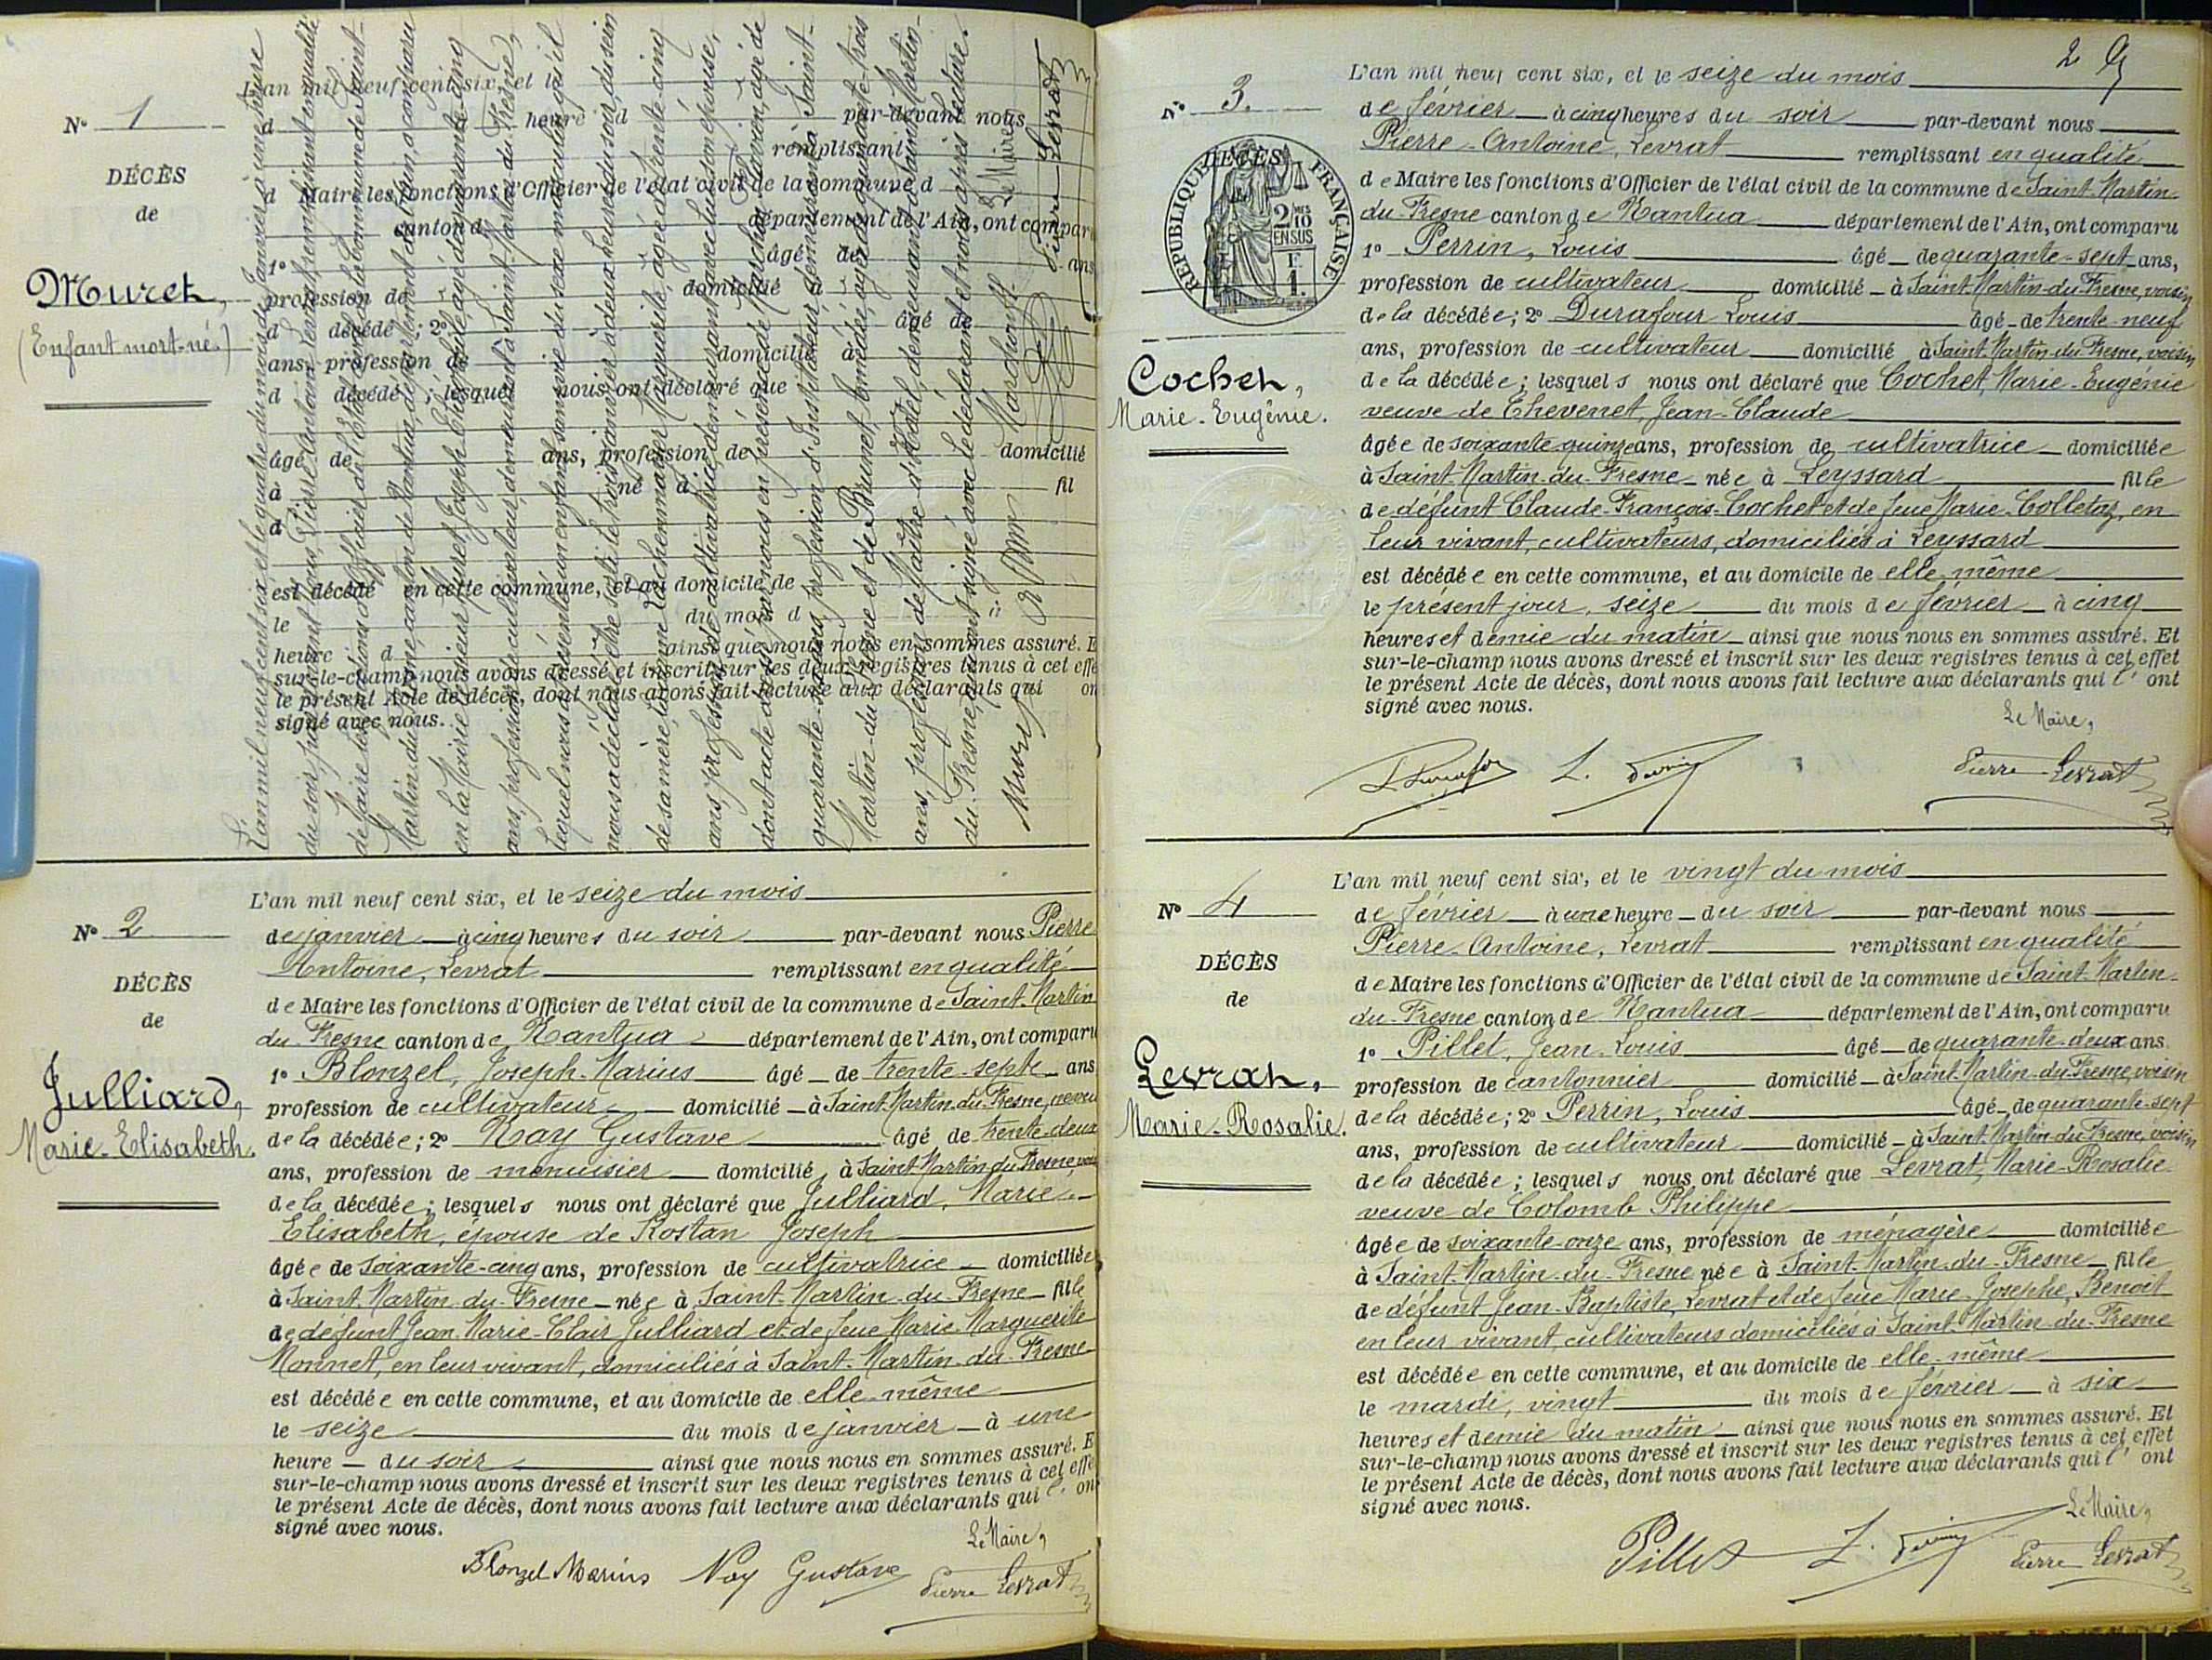 N° 1
DÉCÈS
de
Muret,
(Enfant mort-né)
L'an mil neuf cent six, et le
d heure d par-devant nous
remplissant
d Maire les fonctions d'Officier de l'état civil de la commune d
canton d département de l'Ain, ont comparu
1° âgé de ans
profession de domicilié à
d décédé ; 2° âgé de
ans, profession de domicilié à
d décédé ; lesquels nous ont déclaré que
âgé de ans, profession de domicilié
à né à fil
d
est décédé en cette commune, et au domicile de
le du mois d à
heure d ainsi que nous nous en sommes assuré. E
sur-le-champ nous avons dressé et inscrit sur les deux registres tenus à cet effe
le présent Acte de décès, dont nous avons fait lecture aux déclarants qui on
signé avec nous.
L'an mil neuf cent six et le quatre du mois de Janvier à une heure
du soir par-devant nous, Pierre Antoine Levrat remplissant en qualité
de Maire les fonctions d'Officier de l'Etat civil de la commune de Saint-
Martin-du-Fresne, canton de Nantua, département de l'Ain, a comparu
en la Mairie Muret, Joseph âgé de quarante-cinq
ans, profession de cultivateur, demeurant à Saint-Martin-du-Fresne,
lequel nous a présenté un enfant sans vie du sexe masculin, qu'il
nous a déclaré être sorti le trois janvier à deux heures du soir du sein
de sa mère, Marguerite, âgée de trente-cinq
ans, profession de cultivatrice, demeurant avec lui, son épouse,
dont acte dressé par nous en présence de Marchand, âgé de
quarante ans, profession d'Instituteur, demeurant à Saint-
Martin-du-Fresne et de Brunet, Amédée, âgé de quarante-trois
ans, profession de Maître d'hôtel, demeurant à Saint-Martin-
du-Fresne, qui ont signé avec le déclarant et nous après lecture.
Le Maire,
Muret Marchand Pierre Levrat
N° 2
DÉCÈS
de
Julliard,
Marie-Elisabeth.
L'an mil neuf cent six, et le seize du mois
de janvier à cinq heures du soir par-devant nous Pierre
Antoine, Levrat remplissant en qualité
de Maire les fonctions d'Officier de l'état civil de la commune de Saint-Martin
du-Fresne canton de Nantua département de l'Ain, ont comparu
1° Blonzel, Joseph-Marius âgé de trente-sept ans
profession de cultivateur domicilié à Saint-Martin-du-Fresne, neveu
de la décédée ; 2° Nay Gustave âgé de trente-deux
ans, profession de menuisier domicilié à Saint-Martin-du-Fresne,
de la décédée ; lesquels nous ont déclaré que Julliard, Marie-
Elisabeth, épouse de Rostan Joseph
âgée de soixante-cinq ans, profession de cultivatrice domiciliée
à Saint-Martin-du-Fresne née à Saint-Martin-du-Fresne fille
de défunt Jean-Marie-Clair Julliard et de feue Marie-Marguerite
Monnet, en leur vivant, domiciliés à Saint-Martin-du-Fresne
est décédée en cette commune, et au domicile de elle-même
le seize du mois de janvier à une
heure du soir ainsi que nous nous en sommes assuré. E
sur-le-champ nous avons dressé et inscrit sur les deux registres tenus à cet effe
le présent Acte de décès, dont nous avons fait lecture aux déclarants qui l' on
signé avec nous.
Le Maire,
Blonzel Marius Nay Gustave Pierre Levrat
2
N° 3.
DÉCÈS
REPUBLIQUE FRANÇAISE
2/10 EN SUS
1F
Cochet,
Marie-Eugénie.
L'an mil neuf cent six, et le seize du mois
de février à cinq heures du soir par-devant nous
Pierre-Antoine, Levrat remplissant en qualité
de Maire les fonctions d'Officier de l'état civil de la commune de Saint-Martin-
du-Fresne canton de Nantua département de l'Ain, ont comparu
1° Perrin, Louis âgé de quarante-sept ans,
profession de cultivateur domicilié à Saint-Martin-du-Fresne, voisin
de la décédée ; 2° Durafour Louis âgé de trente-neuf
ans, profession de cultivateur domicilié à Saint-Martin-du-Fresne, voisin
de la décédée ; lesquels nous ont déclaré que Cochet, Marie-Eugénie
veuve de Thevenet, Jean-Claude
âgée de soixante quinze ans, profession de cultivatrice domiciliée
à Saint-Martin-du-Fresne née à Leyssard fille
de défunt Claude-François-Cochet et de feue Marie-Colletaz, en
leur vivant, cultivateurs, domiciliés à Leyssard
est décédée en cette commune, et au domicile de elle-même
le présent jour, seize du mois de février à cinq
heures et demie du matin ainsi que nous nous en sommes assuré. Et
sur-le-champ nous avons dressé et inscrit sur les deux registres tenus à cet effet
le présent Acte de décès, dont nous avons fait lecture aux déclarants qui l' ont
signé avec nous.
Le Maire,
L. Durafour L. Perrin Pierre Levrat
N° 4
DÉCÈS
de
Levrat,
Marie-Rosalie.
L'an mil neuf cent six, et le vingt du mois
de février à une heure du soir par-devant nous
Pierre-Antoine, Levrat remplissant en qualité
de Maire les fonctions d'Officier de l'état civil de la commune de Saint-Martin-
du-Fresne canton de Nantua département de l'Ain, ont comparu
1° Pillet, Jean-Louis âgé de quarante-deux ans
profession de cantonnier domicilié à Saint-Martin-du-Fresne, voisin
de la décédée ; 2° Perrin, Louis âgé de quarante-sept
ans, profession de cultivateur domicilié à Saint-Martin-du-Fresne, voisin
de la décédée ; lesquels nous ont déclaré que Levrat, Marie-Rosalie
veuve de Colomb Philippe
âgée de soixante-onze ans, profession de ménagère domiciliée
à Saint-Martin-du-Fresne née à Saint-Martin-du-Fresne fille
de défunt Jean-Baptiste, Levrat et de feue Marie-Josephe, Benoit
en leur vivant, cultivateurs domiciliés à Saint-Martin-du-Fresne
est décédée en cette commune, et au domicile de elle-même
le mardi, vingt du mois de février à six
heures et demie du matin ainsi que nous nous en sommes assuré. Et
sur-le-champ nous avons dressé et inscrit sur les deux registres tenus à cet effet
le présent Acte de décès, dont nous avons fait lecture aux déclarants qui l' ont
signé avec nous.
Le Maire,
Pillet L. Perrin Pierre Levrat